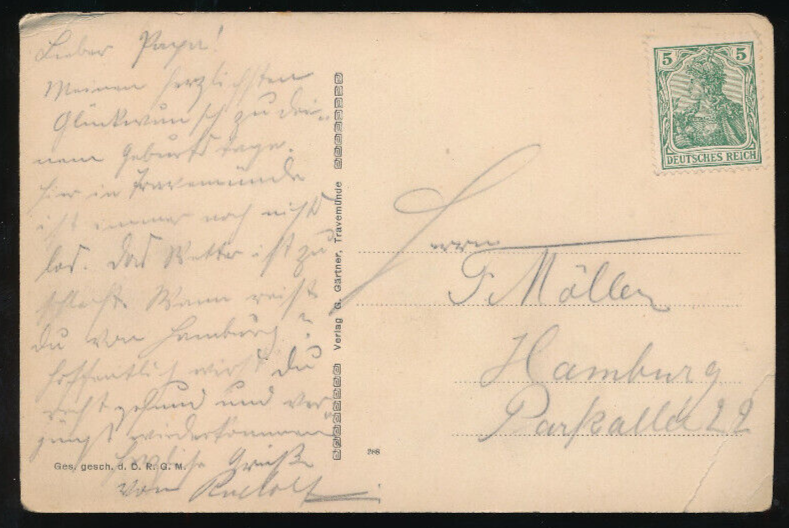 Lieber Papa!
Meinen herzlichsten
Glückwunsch zu dei-
nem Geburtstage.
Hier in Travemünde
ist immer noch nichts
los. Das Wetter ist zu
schlecht. Wann reist
du von Hamburg?
Hoffentlich wirst du
recht gesund und ver-
jüngt wiederkommen
Herzliche Grüße
von Rudolf
Ges. gesch. d. D. R. G. M.
Verlag G. Gärtner, Travemünde
788
5 5
DEUTSCHES REICH
Herrn
F. Möller
Hamburg
Parkallee 22